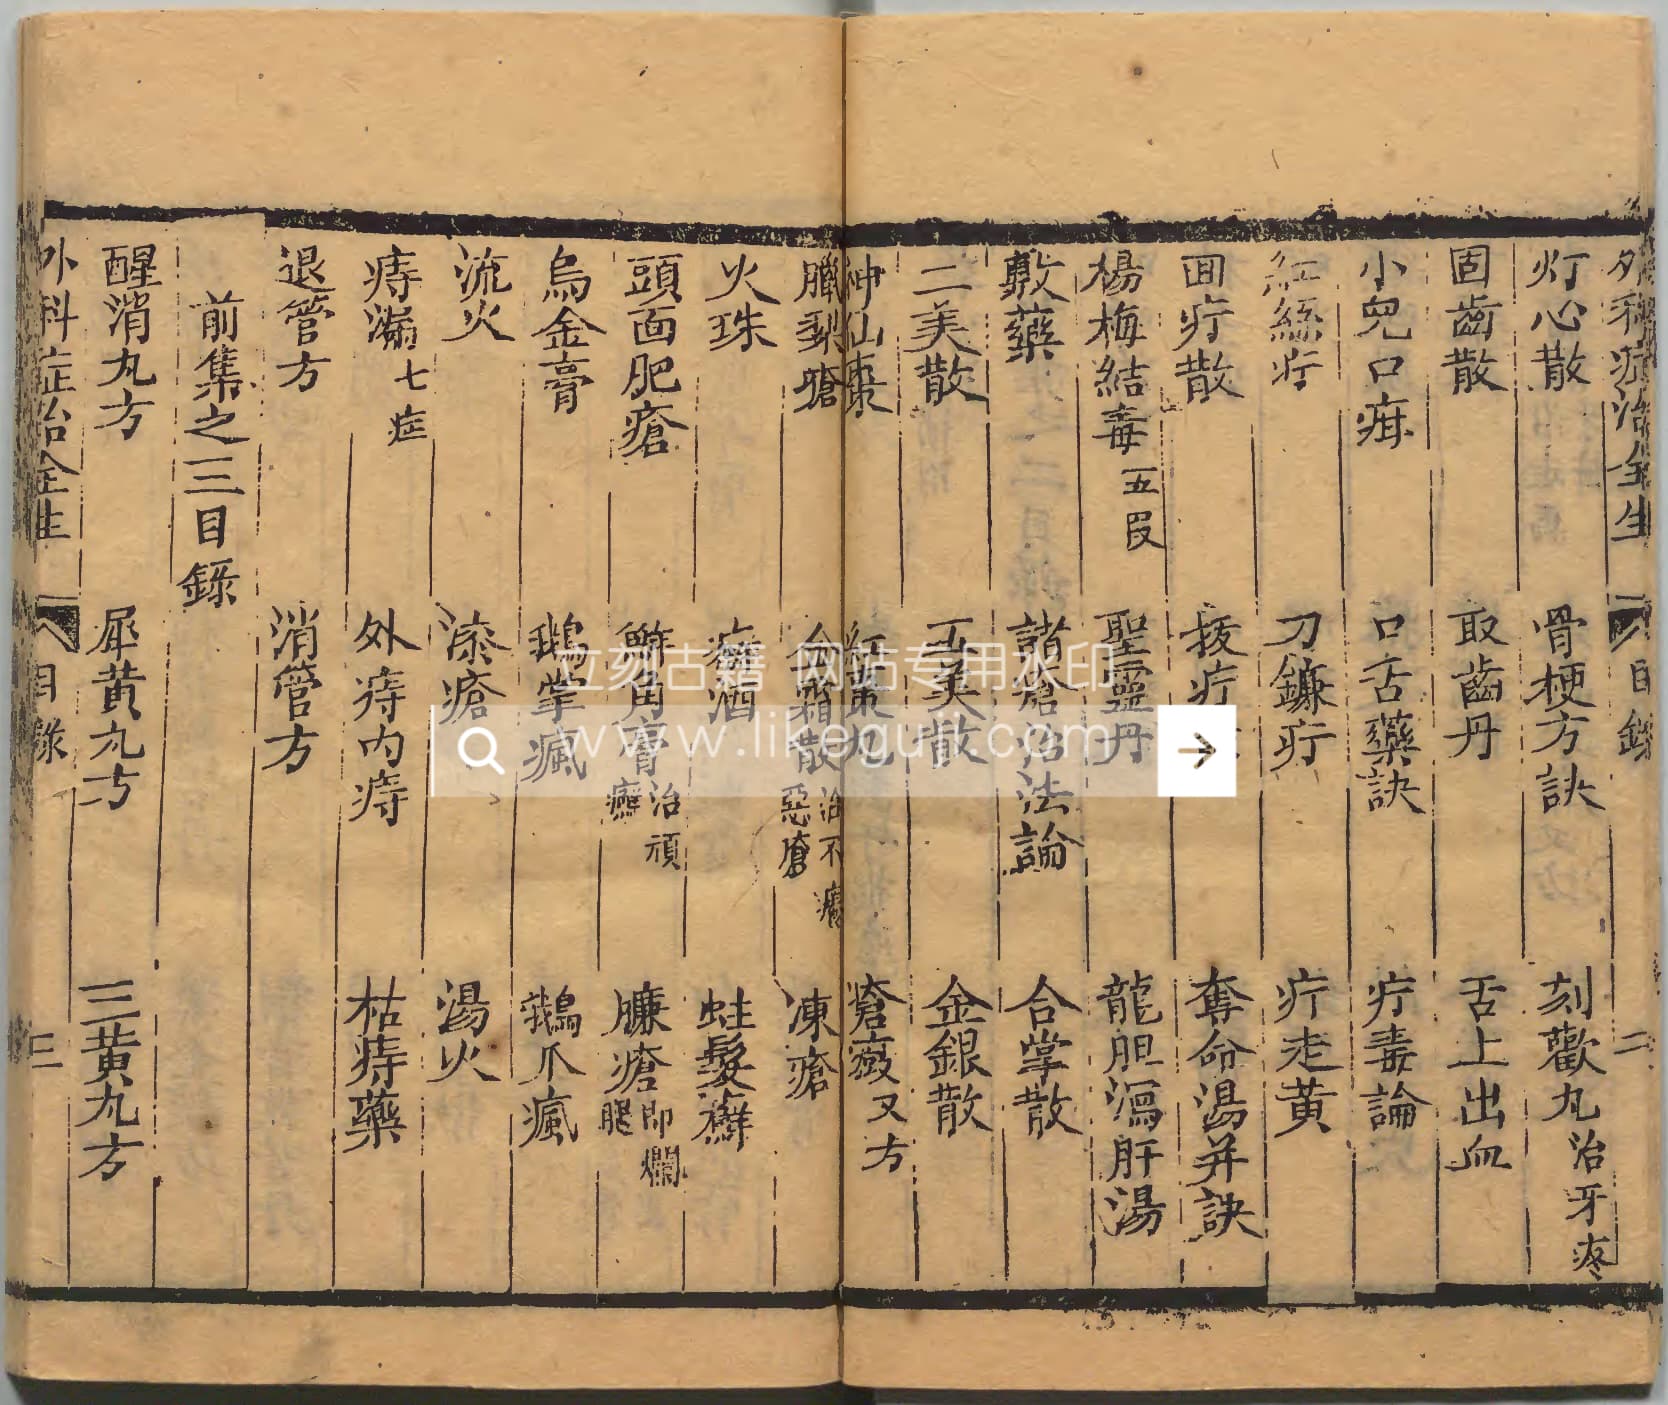 外科症治全生 目錄 二
灯心散 骨梗方訣 刻歡丸 治牙疼
固齒散 取齒丹 舌上出血
小兒口疳 口舌藥訣 疔毒論
紅絲疔 刀鐮疔 疔走黃
回疔散 拔疔 奪命湯并訣
楊梅結毒 五叚 聖靈丹 龍胆瀉肝湯
敷藥 諸瘡治法論 合掌散
二美散 三美散 金銀散
神仙棗 紅棗丸 瘡癈又方
臘梨瘡 合霜散 治不瘋惡瘡 凍瘡
火珠 癬酒 蛀髮癬
頭面肥瘡 觧角膏 治頑癬 臁瘡 即爛腿
烏金膏 鵝掌瘋 鵝爪瘋
流火 漆瘡 湯火
痔漏 七症 外痔內痔 枯痔藥
退管方 消管方
前集之三目錄
醒消丸方 犀黃丸方 三黃丸方
外科症治全生 目錄 三
立刻古籍 网站专用水印
www.likeguji.com